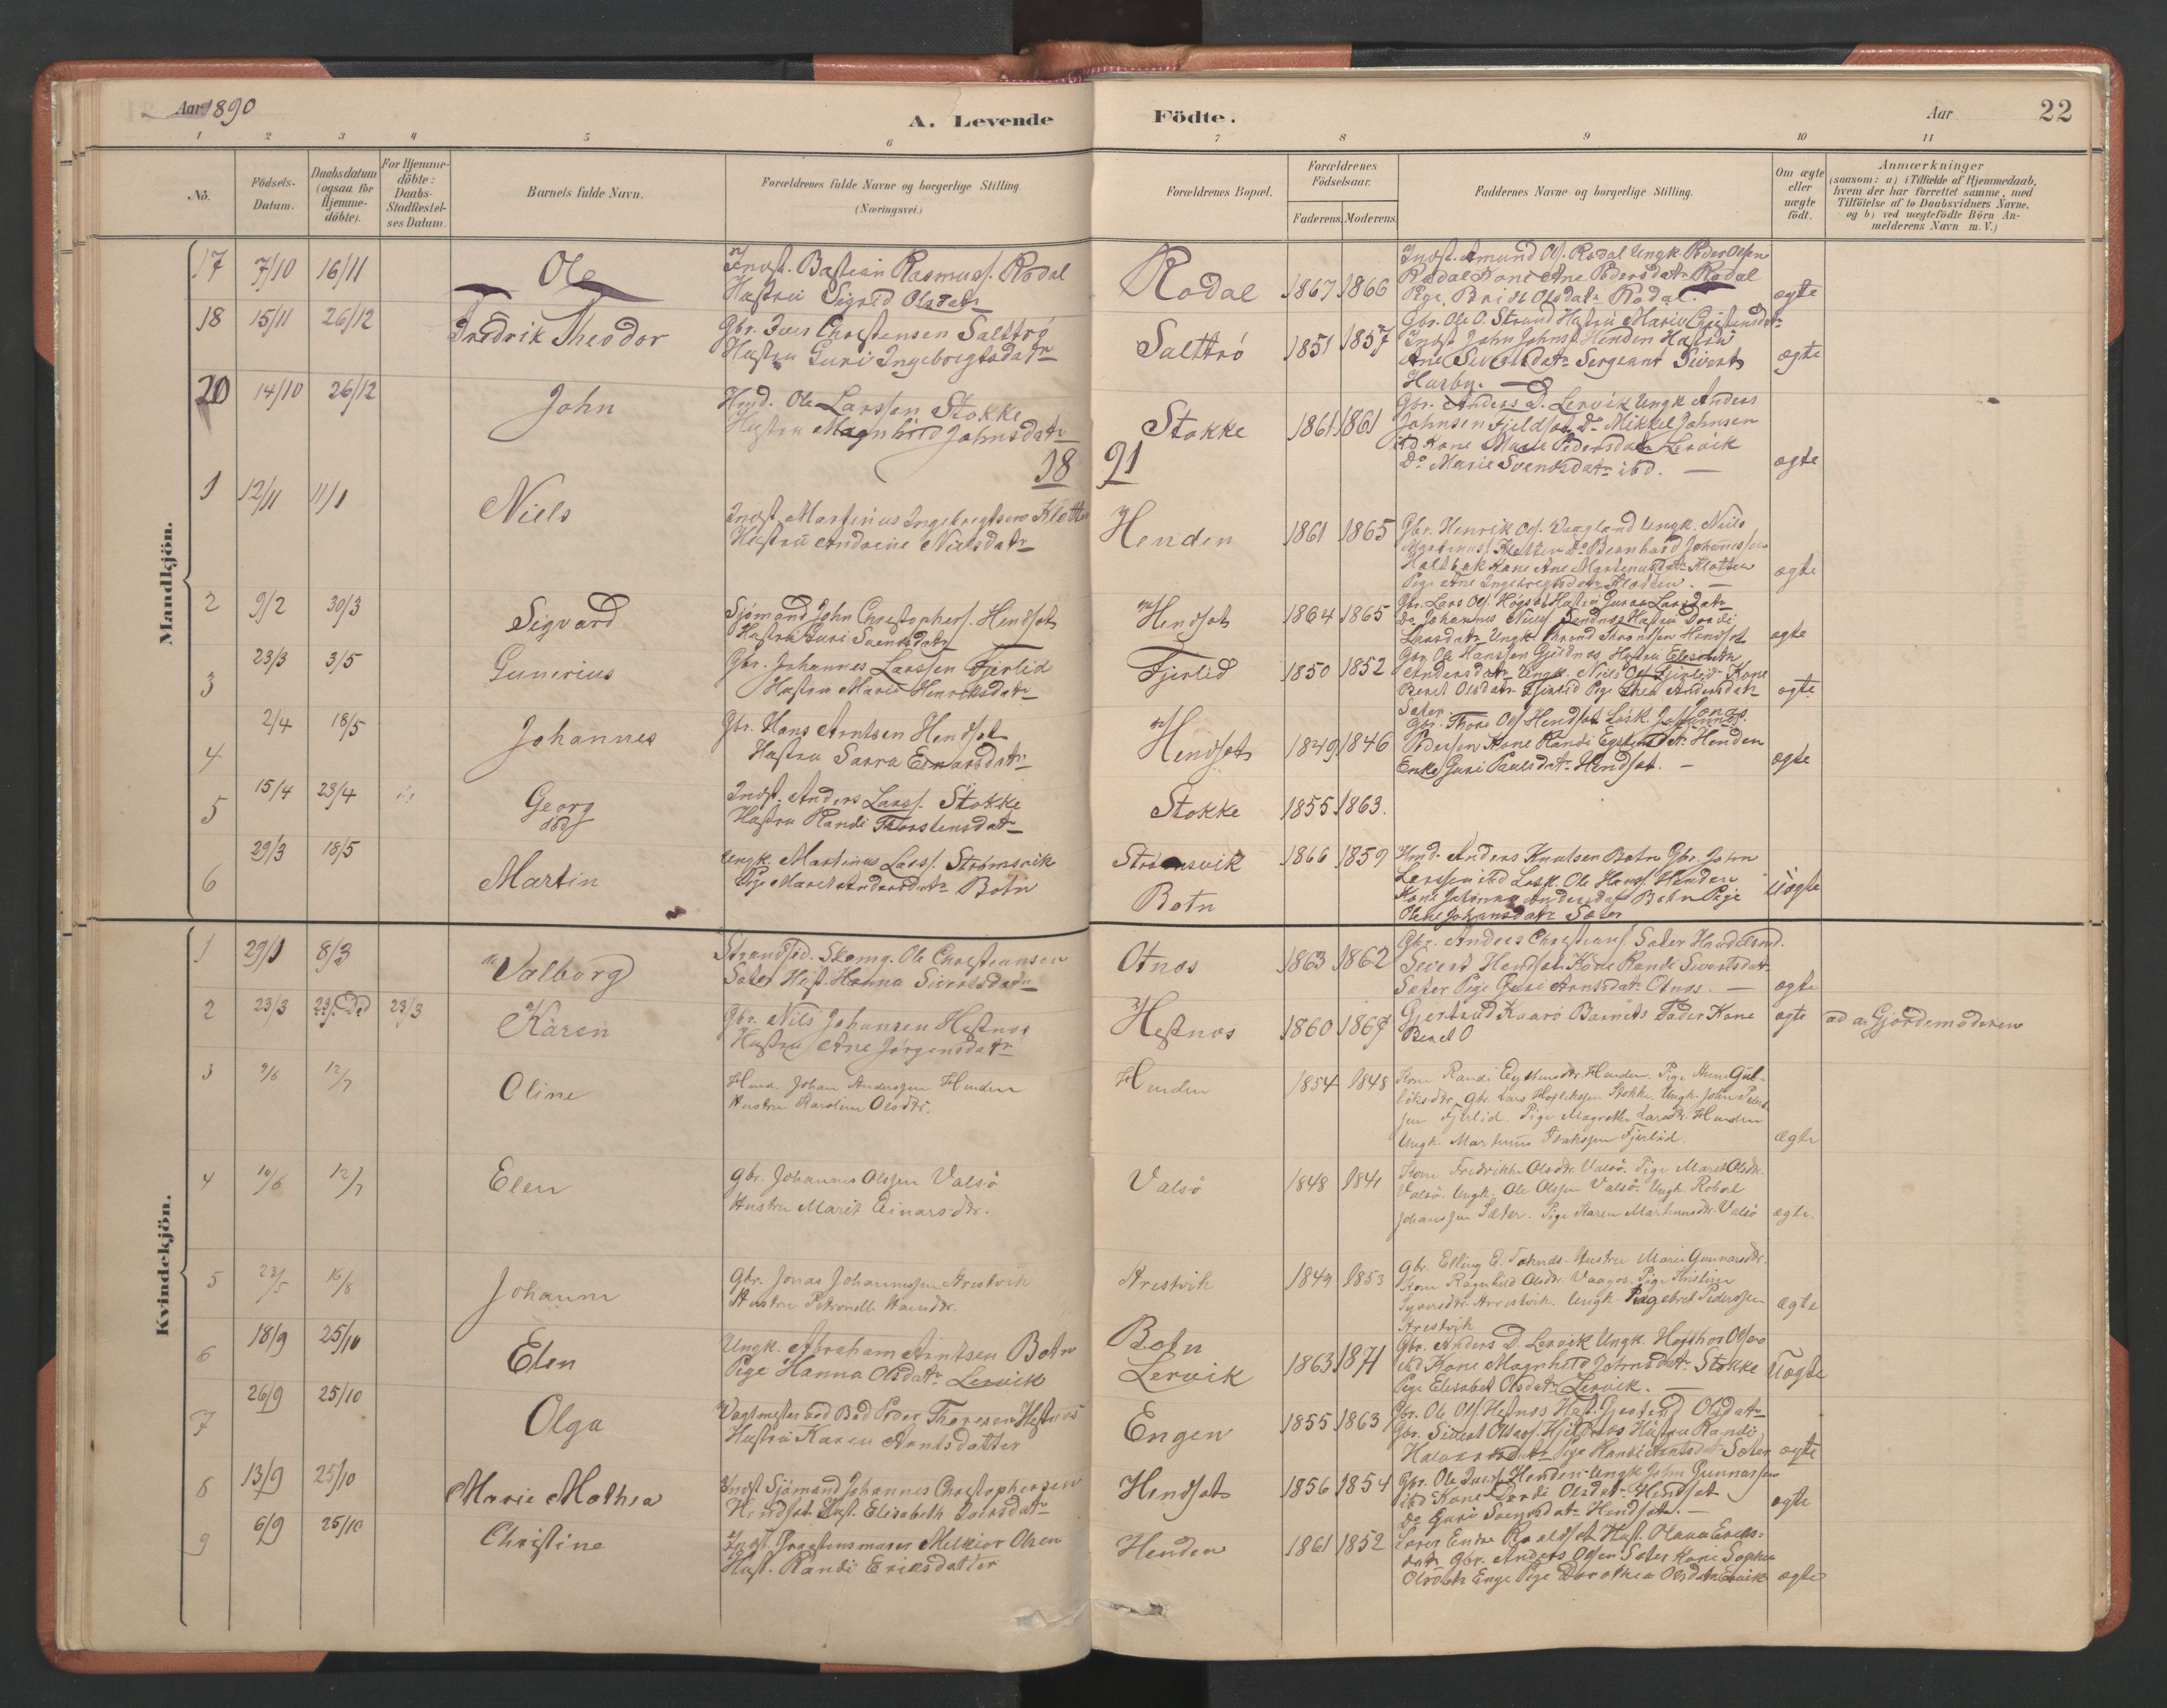 Aar 1890
A. Levende Födte.
Aar
22
1 2 3 4 5 6 7 8 9 10 11
No.
Födsels-Datum.
Daabsdatum (ogsaa for Hjemme-döbte).
For Hjemme-döbte: Daabs-Stadfæstel-ses Datum.
Barnets fulde Navn.
Forældrenes fulde Navne og borgerlige Stilling. (Næringsvei.)
Forældrenes Bopæl.
Forældrenes Födselsaar.
Faderens. Moderens.
Faddernes Navne og borgerlige Stilling.
Om ægte eller uægte födt.
Anmærkninger
(saasom: a) i Tilfælde af Hjemmedaab,
hvem der har forrettet samme, med
Tilföielse af to Daabsvidners Navne,
og b) ved uægtefödte Börn An-
melderens Navn m. V.)
Mandkjön.
17 7/10 16/11 Ole
Indst. Bastian Rasmuss. Rodal
Hustru Sigrid Olsdatr
Rodal 1867 1866
Indst. Amund Ols. Rodal Ungk Peder Olsen
Rodal Kone Ane Pedersdatr Rodal
Pige Brit Olsdatr Rodal.
ægte
18 15/11 26/12 Fredrik Theodor
Gbr. Iver Christensen Salttrö
Hustru Guri Ingebregtsdatr
Salttrö 1851 1857
Gbr. Ole O. Strand Hustru Marie Christensdatr
Indst John Johns. Henden Hustru
Ane Sivertsdatr Sergeant Sivert
Harby.
ægte
20 14/10 26/12 John
Hmd. Ole Larssen Stokke
Hustru Magnhild Johnsdatr
Stokke 1861 1861
Gbr. Anders D. Lervik Ungk Anders
Johnsen Fjeldset Do Mikkel Johnsen
ibd Kone Marie Pedersdatr Lervik
Do Marie Svendsdatr ibd.
ægte
18 91
1 12/11 11/1 Niels
Indst. Martinus Ingebregtsen
Hustru Andrine Nielsdatr
Henden 1861 1865
Gbr. Henrik Ols. Vaagland Ungk. Niels
Martinuss. Kletten Do Bernhard Johannessen
Holtbak Kone Ane Martinusdatr Kletten
Pige Ane Ingebregtsdatr Kletten.
ægte
2 9/2 30/3 Sigvard
Sjömand John Christophers. Hendset
Hustru Guri Svensdatr
Hendset 1864 1865
Gbr. Lars Ols. Högset Hustru Guroe Larsdatr
Do Johannes Niels. Hustru Dordi
Larsdatr Ungk. Trond Trondsen Hendset
ægte
3 23/3 3/5 Gunerius
Gbr. Johannes Larssen Fjerlid
Hustru Marie Henriksdatr
Fjerlid 1850 1852
Gbr Ole Hanssen Gjeldnes Hustru Elisabeth
Andersdatr Ungk. Niels Ols Fjerlid Kone
Beret Olsdatr Fjerlid Pige Thea Andersdatr
Sæter.
ægte
4 2/4 18/5 Johannes
Gbr. Hans Arntsen Hendset
Hustru Sarra Einarsdatr
Hendset 1849 1846
Gbr. Thore Ols Hendset Losk. Jonas
Pedersen Kone Randi Eystensdatr Henden
Enke Guri Paulsdatr Hendset.
ægte
5 15/4 23/4 Georg död
Indst. Anders Larss. Stokke
Hustru Randi Thorstensdatr
Stokke 1855 1863.
6 29/3 18/5 Martin
Ungk. Martinus Larss. Strömsvik
Pige Maret Andersdatr Botn
Strömsvik
Botn
1866 1859
Hmd. Anders Knutsen Botn Gbr. John
Larssen ibd Losk. Ole Hanss. Henden
Kone Johanna Andersdatr Botn Pige
Olene Johansdatr Sæter
Uægte
Kvindekjön.
1 29/1 8/3 Valborg
Strandsid. Skomg. Ole Christiansen
Sæter Hust. Hanna Sivertsdatr
Otnes 1863 1862
Gbr. Anders Christians. Sæter Handelsmd.
Sivert Hendset Kone Randi Sivertsdatr
Sæter Pige Guri Arntsdatr Otnes.
ægte
2 23/3 Död 23/3 Karen
Gbr. Nils Johansen Hestnes
Hustru Ane Jörgensdatr
Hestnes 1860 1867
Gjertrud Kaarö Barnets Fader Kone
Beret O
ægte
ad a Gjordemoderen
3 9/6 12/7 Oline
Hmd. Johan Anderssen Henden
Hustru Karoline Olsdtr.
Henden 1854 1848
Kone Randi Eystensdtr. Henden. Pige Ane Gul-
liksdtr. Gbr. Lars Stokke. Ungk. John Peder-
sen Fjerlid. Pige Magrethe Larsdtr. Henden
Ungk. Martinus Isaksen Fjerlid.
ægte
4 14/6 12/7 Elen
Gbr. Johannes Olssen Valsö
Hustru Marit Einarsdtr.
Valsö 1848 1841
Kone Fredrikke Olsdtr. Valsö. Pige Marit Olsdtr.
Valsö. Ungk. Ole Olssen Valsö. Ungk. Robert
Johanssen Sæter. Pige Karen Martinusdtr. Valsö
ægte.
5 23/5 16/8 Johanne
Gbr. Jonas Johannessen Arestvik
Hustru Petronelle Hansdtr.
Arestvik 1849 1853
Gbr. Elling E. Hustru Marie Gunnarsdtr.
Kone Ragnhild Olsdtr. Vaagos. Pige Kristine
Syversdtr. Arestvik. Ungk. Ingebret Pederssen
Arestvik
ægte
6 18/9 25/10 Elen
Ungk. Abraham Arntsen Botn
Pige Hanna Olsdatr Lervik
Botn
Lervik
1863 1871
Gbr. Anders D. Lervik Ungk. Olsen
ibd Kone Magnhild Johnsdatr Stokke
Pige Elisabet Olsdatr Lervik.
Uægte
7 26/9 25/10 Olga
Vagtmester ved Bod Peder Thoresen Hestnes
Hustru Karen Arntsdatter
Engen 1855 1863
Gbr. Ole Ols. Hestnes Hust. Gjertrud Olsdatr
Gbr. Sivert Hustru Randi
Halvorsdatr Pige Randi Arntsdatr Sæter
ægte
8 13/9 25/10 Marie Mathea
Indst Sjömand Johannes Christophersen
Hendset Hust. Elisabeth Iversdatr
Hendset 1856 1854
Gbr. Ole Iverss. Henden Ungk John Gunnarssen
ibd Kone Dordi Olsdatr Hendset
Do Guri Svensdatr Hendset.
ægte
9 6/9 25/10 Christine
Indst. Melkior Olsen
Hust. Randi Eriksdatter
Henden 1861 1852
Lærer Endre Roaldset Hust. Olava Eriks-
datr Gbr. Anders Olsen Sæter Kone Sophie
Olsdatr Enge Pige Dorothea Olsdatr Lervik
ægte